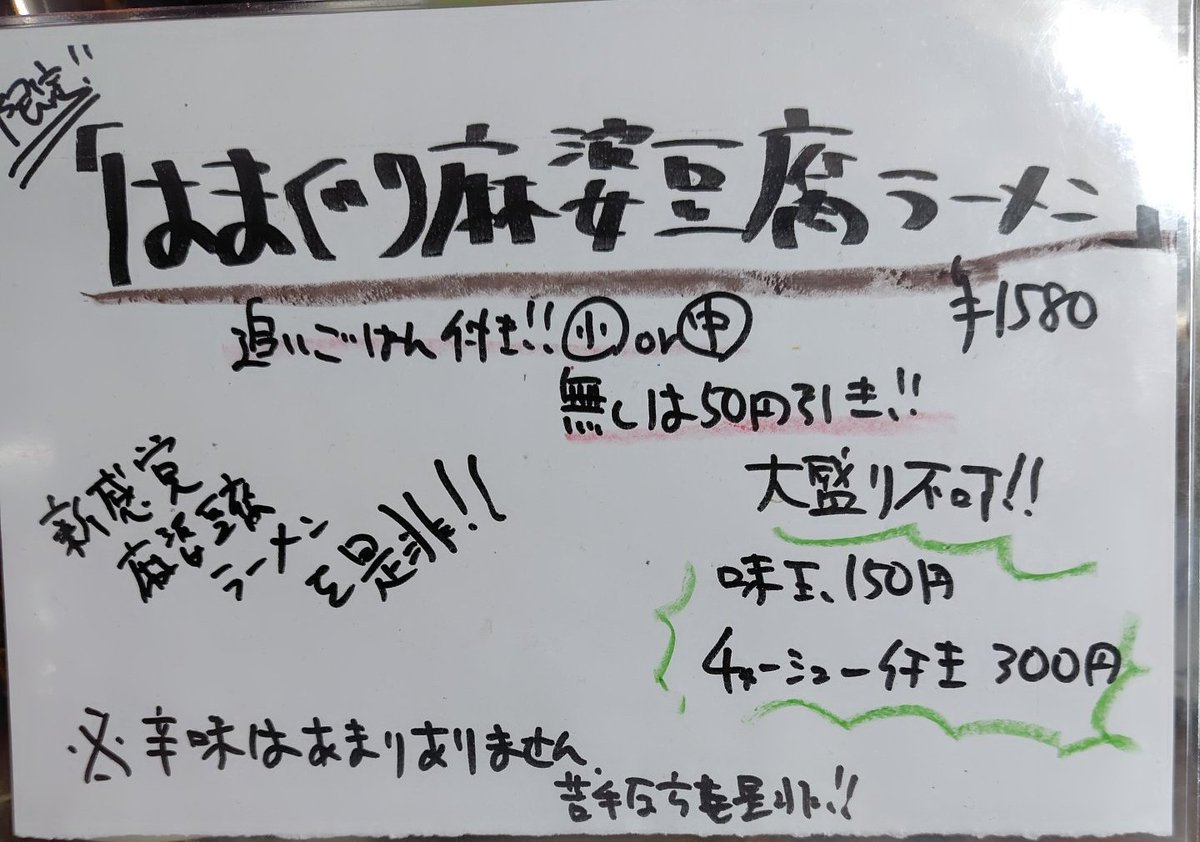 限定!!
「はまぐり麻婆豆腐ラーメン」
¥1580
追いごはん付き!!小or中
無しは50円引き!!
大盛り不可!!
新感覚
麻婆豆腐
ラーメン
を是非!!
味玉、150円
チャーシュー付き 300円
※辛味はあまりありません。
苦手な方も是非!!